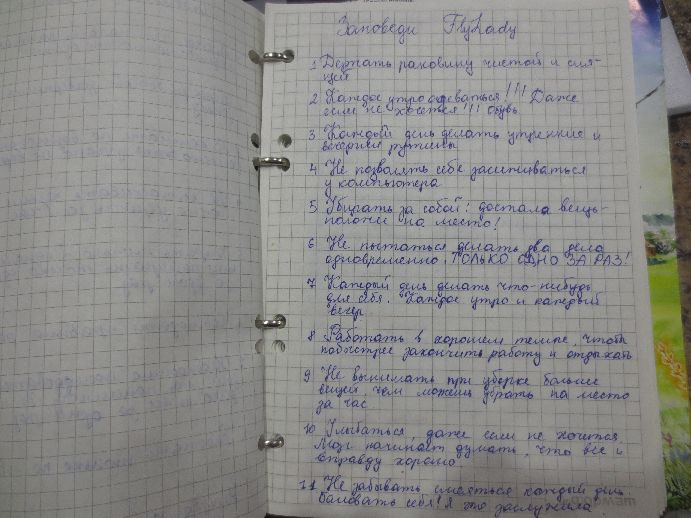 Заповеди FlyLady
1 Держать раковину чистой и сия-
щей
2 Каждое утро одеваться!!! Даже
если не хочется!!! Обувь
3. Каждый день делать утренние и
вечерние рутины
4 Не позволять себе засиживаться
у компьютера
5. Убирать за собой! достала вещь-
положи на место!
6 Не пытаться делать два дела
одновременно. ТОЛЬКО ОДНО ЗА РАЗ!
7 Каждый день делать что-нибудь
для себя. Каждое утро и каждый
вечер
8 Работать в хорошем темпе, чтобы
побыстрее закончить работу и отдыхать
9 Не вынимать при уборке больше
вещей, чем можешь убрать на место
за час
10 Улыбаться, даже если не хочется.
Мозг начинает думать, что все и
вправду хорошо
11 Не забывать смеяться каждый день.
Баловать себя! Я это заслужила